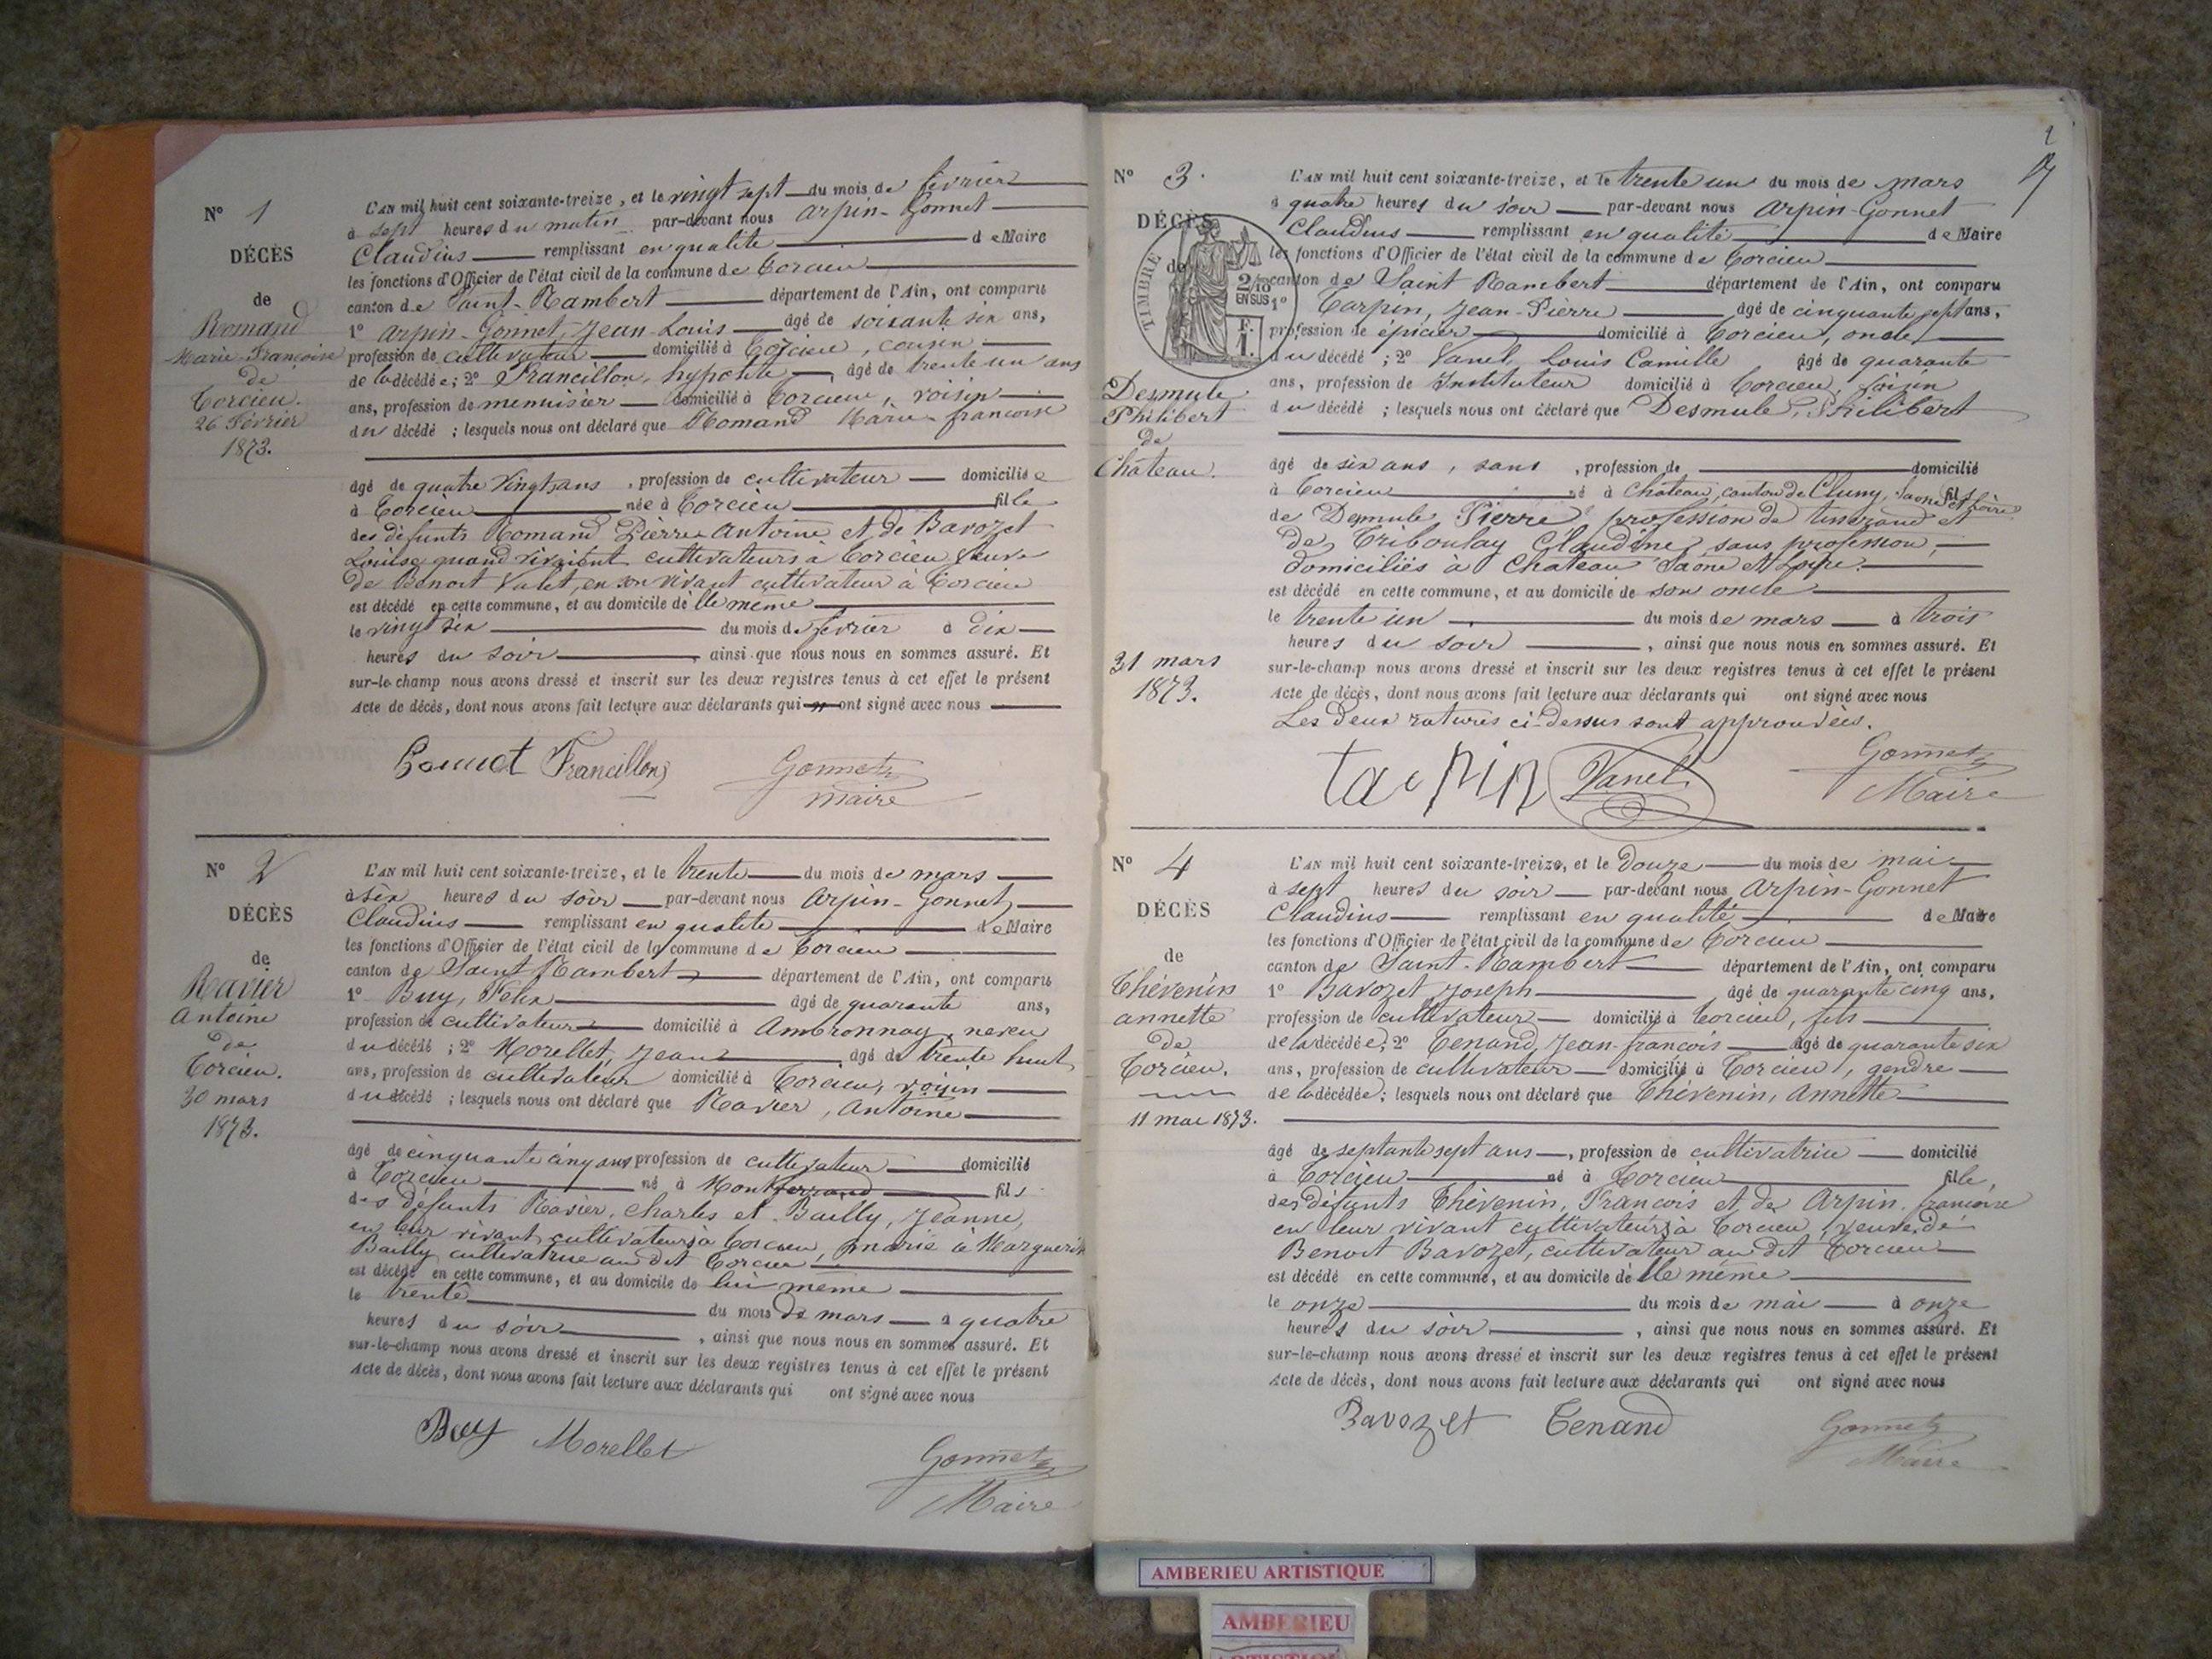 N° 1
DÉCÈS
de
Romand
Marie-Françoise
de
Torcieu.
26 Février
1873.
L'AN mil huit cent soixante-treize, et le vingt sept du mois de février
à sept heures du matin par-devant nous Arpin-Gonnet
Claudius remplissant en qualité de Maire
les fonctions d'Officier de l'état civil de la commune de Torcieu
canton de Saint-Rambert département de l'Ain, ont comparu
1° Arpin-Gonnet, Jean-Louis âgé de soixante six ans,
profession de cultivateur domicilié à Torcieu, cousin
de la décédée; 2° Francillon, hypolite, âgé de trente un ans
ans, profession de menuisier domicilié à Torcieu, voisin
du décédé ; lesquels nous ont déclaré que Romand Marie-françoise
âgé de quatre vingt ans, profession de cultivateur domiciliée
à Torcieu née à Torcieu fille
des défunts Romand Pierre Antoine et de Bavozet
Louise quand vivaient cultivateurs à Torcieu veuve
de Benoit Valet, en son vivant cultivateur à Torcieu
est décédé en cette commune, et au domicile de lle même
le vingt six du mois de février à dix
heures du soir, ainsi que nous nous en sommes assuré. Et
sur-le-champ nous avons dressé et inscrit sur les deux registres tenus à cet effet le présent
Acte de décès, dont nous avons fait lecture aux déclarants qui ont signé avec nous
Gonnet Francillon Gonnet
maire
N° 2
DÉCÈS
de
Ravier
Antoine
de
Torcieu.
30 mars
1873.
L'AN mil huit cent soixante-treize, et le trente du mois de mars
à six heures du soir par-devant nous Arpin-Gonnet,
Claudius remplissant en qualité de Maire
les fonctions d'Officier de l'état civil de la commune de Torcieu
canton de Saint Rambert département de l'Ain, ont comparu
1° Buy, Félix âgé de quarante ans,
profession de cultivateur domicilié à Ambronnay, neveu
du décédé ; 2° Morellet, Jean âgé de trente huit
ans, profession de cultivateur domicilié à Torcieu, voisin
du décédé ; lesquels nous ont déclaré que Ravier, Antoine
âgé de cinquante cinq ans profession de cultivateur domicilié
à Torcieu né à Montferrand fils
des défunts Ravier, Charles et Bailly, Jeanne,
en leur vivant cultivateurs à Torcieu, marié à Marguerite
Bailly cultivatrice au dit Torcieu
est décédé en cette commune, et au domicile de lui même
le trente du mois de mars à quatre
heures du soir, ainsi que nous nous en sommes assuré. Et
sur-le-champ nous avons dressé et inscrit sur les deux registres tenus à cet effet le présent
Acte de décès, dont nous avons fait lecture aux déclarants qui ont signé avec nous
Buy Morellet
Gonnet
Maire
2
N° 3.
DÉCÈS
de
TIMBRE
2/10
EN SUS
F.
1.
Desmule
Philibert
de
Château.
31 mars
1873.
L'AN mil huit cent soixante-treize, et le trente un du mois de mars
à quatre heures du soir par-devant nous Arpin-Gonnet
Claudius remplissant en qualité de Maire
les fonctions d'Officier de l'état civil de la commune de Torcieu
canton de Saint Rambert département de l'Ain, ont comparu
1° Tarpin, Jean-Pierre âgé de cinquante sept ans,
profession de épicier domicilié à Torcieu, oncle
du décédé ; 2° Vanel, Louis Camille âgé de quarante
ans, profession de Instituteur domicilié à Torcieu, voisin
du décédé ; lesquels nous ont déclaré que Desmule, Philibert
âgé de six ans, sans, profession de domicilié
à Torcieu né à Château, canton de Cluny, Saone et Loire fils
de Desmule Pierre profession de tisserand et
de Triboulay Claudine, sans profession,
domiciliés à Chateau Saône et Loire.
est décédé en cette commune, et au domicile de son oncle
le trente un du mois de mars à trois
heures du soir, ainsi que nous nous en sommes assuré. Et
sur-le-champ nous avons dressé et inscrit sur les deux registres tenus à cet effet le présent
Acte de décès, dont nous avons fait lecture aux déclarants qui ont signé avec nous
Les deux ratures ci-dessus sont approuvées.
tarpin Vanel Gonnet
Maire
N° 4
DÉCÈS
de
Thévenin
annette
de
Torcieu.
11 mai 1873.
L'AN mil huit cent soixante-treize, et le Douze du mois de mai
à sept heures du soir par-devant nous Arpin-Gonnet
Claudius remplissant en qualité de Maire
les fonctions d'Officier de l'état civil de la commune de Torcieu
canton de Saint-Rambert département de l'Ain, ont comparu
1° Bavozet Joseph âgé de quarante cinq ans,
profession de cultivateur domicilié à Torcieu, fils
de la décédée; 2° Tenand, Jean-françois âgé de quarante six
ans, profession de cultivateur domicilié à Torcieu, gendre
de la décédée ; lesquels nous ont déclaré que Thévenin, Annette
âgé de septante sept ans, profession de cultivatrice domicilié
à Torcieu né à Torcieu fille,
des défunts Thévenin, François et de Arpin françoise
en leur vivant cultivateurs à Torcieu, veuve de
Benoit Bavozet, cultivateur au dit Torcieu
est décédé en cette commune, et au domicile de lle même
le onze du mois de mai à onze
heures du soir, ainsi que nous nous en sommes assuré. Et
sur-le-champ nous avons dressé et inscrit sur les deux registres tenus à cet effet le présent
Acte de décès, dont nous avons fait lecture aux déclarants qui ont signé avec nous
Bavozet Tenand Gonnet
Maire
AMBERIEU ARTISTIQUE
AMBERIEU
ARTISTIQUE